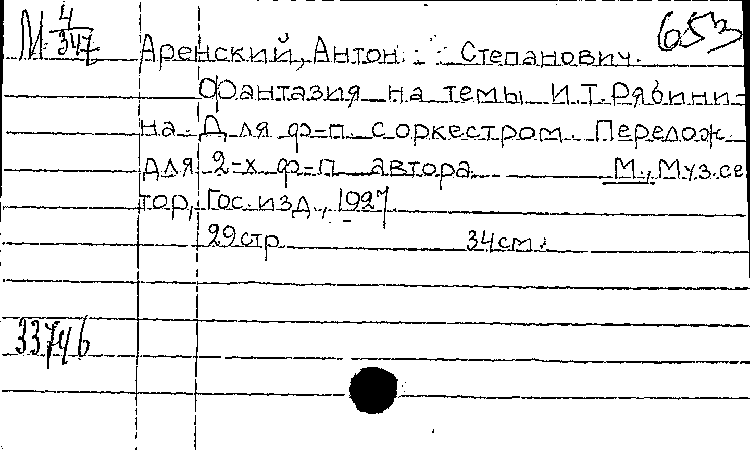 М 4/347
653
Аренский, Антон Степанович.
Фантазия на темы И.Т.Рябини-
на. Для ф-п. с оркестром. Перелож.
для 2-х ф-п автора М., Муз.се
тор, Гос.изд., 1927
29стр 34см.
33746